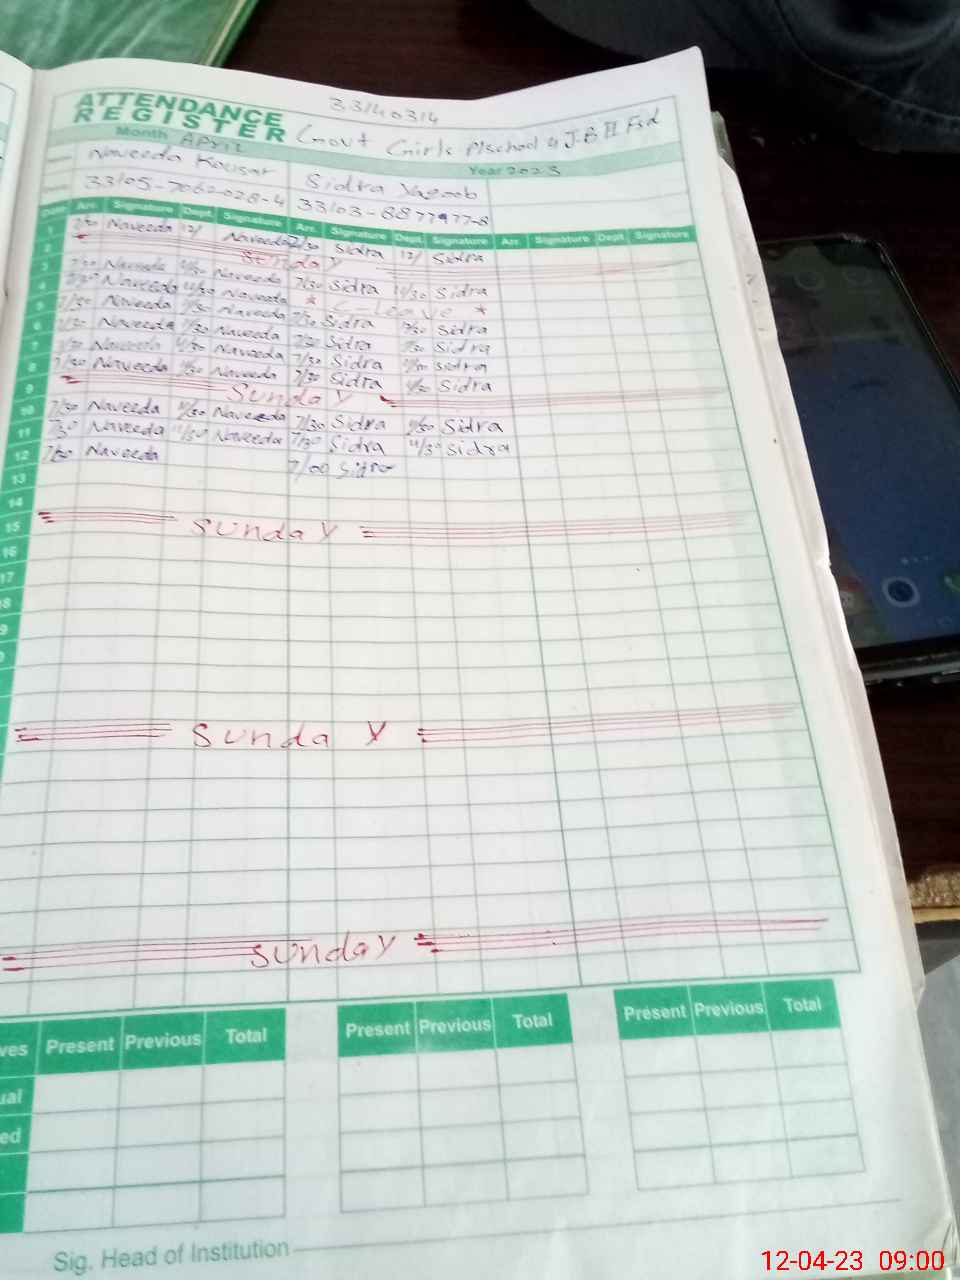 33140314
ATTENDANCE
REGISTER Govt Girls P/School 4 J.B II Fsd
Month APril Year 2023
Naveeda Kousar Sidra Yaqoob
33105-7062028-4 33103-8877977-8
Date Arr. Signature Dept. Signature Arr. Signature Dept. Signature Arr. Signature Dept. Signature
1 7/30 Naveeda 12/ Naveeda 7/30 Sidra 12/ Sidra
2 Sunday
3 Naveeda Naveeda 7/30 Sidra 11/30 Sidra
4 Naveeda 11/30 Naveeda * C-leave *
5 Naveeda Naveeda 7/30 Sidra Sidra
6 7/30 Naveeda 11/30 Naveeda 7/30 Sidra Sidra
7 Naveeda Naveeda 7/30 Sidra Sidra
8 7/30 Naveeda Naveeda 7/30 Sidra Sidra
9 Sunday
10 7/30 Naveeda 11/30 Naveeda 7/30 Sidra Sidra
11 7/30 Naveeda 11/30 Naveeda 7/30 Sidra 11/30 Sidra
12 7/30 Naveeda 7/00 Sidra
13
14
15 SUNDAY
16
17
18
19
SUNDAY
SUNDAY
Present Previous Total Present Previous Total Present Previous Total
Sig. Head of Institution
12-04-23 09:00